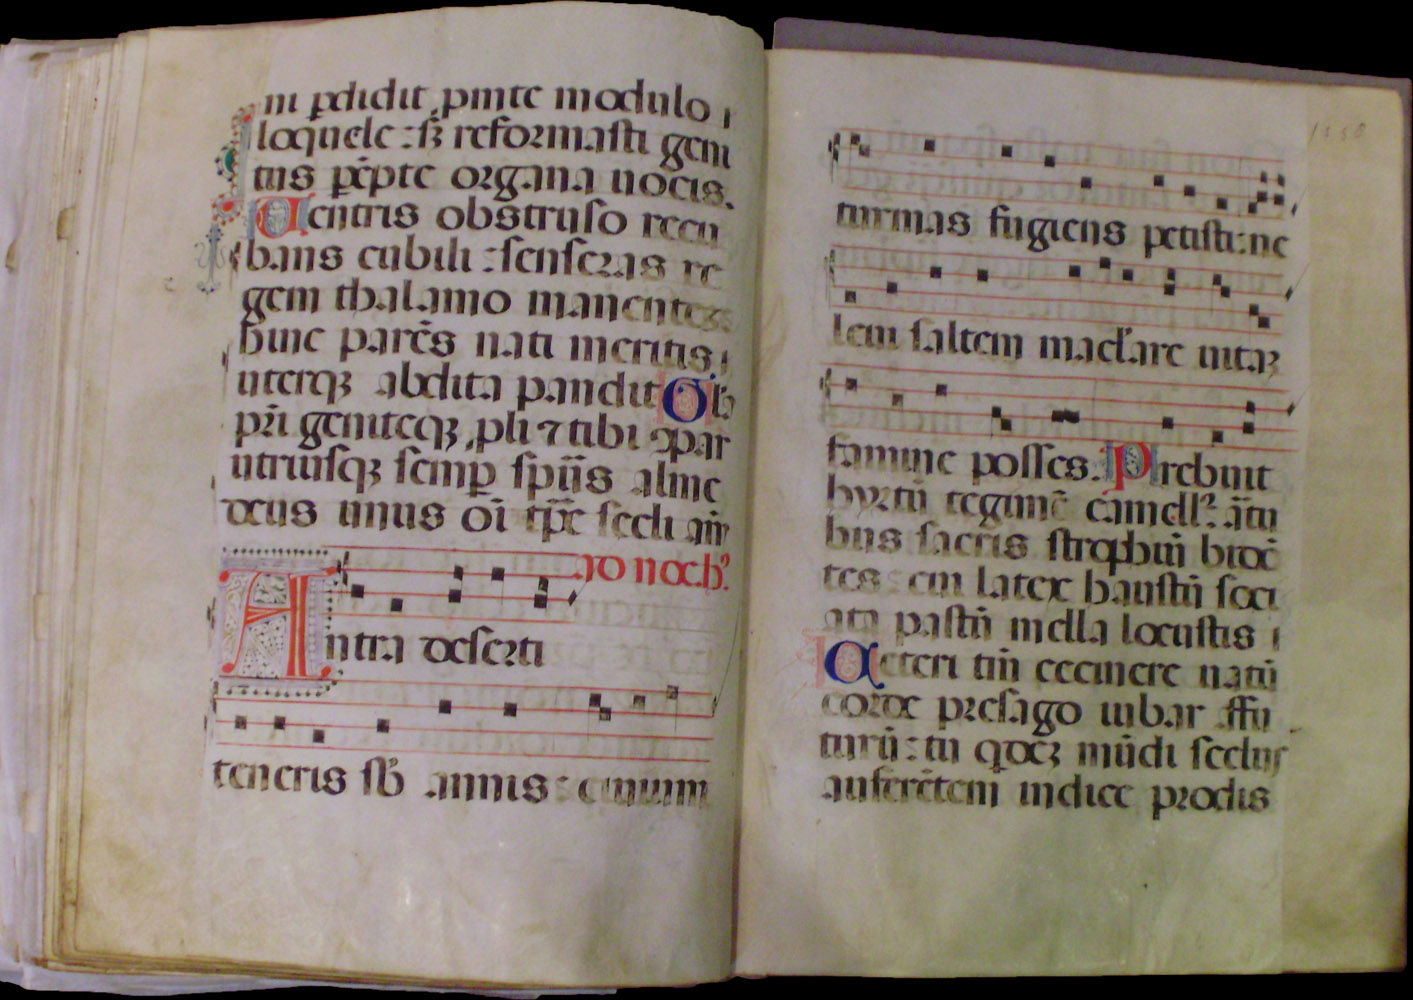 ni p̱didit ,p̱mte modulo
loquele : sȝ reformasti geni
tus pēpte organa uocis.
Uentris obstruso recu
bans cubili : senseras re
gem thalamo manentes
hinc parēs nati meritis
uterqȝ abdita pandit Gl'a
pr̄i geniteqȝ ,pli ⁊ tibi ꝯpar
utriusqȝ semp̱ sp̄us alme
deus unus oī tp̄e secli am̄
ad noc. h⁹.
Antra deserti
teneris sb̄ annis : ciuium
turmas fugiens petisti : ne
leui saltem mac'lare uitaȝ
famine posses. Prebuit
hyrtū tegumē camell⁹. artu
bus sacris strophiū bidē
tes : cui latex haustū soci
ata pastū mella locustis
Ceteri tm̄ cecinere uatū
corde presago iubar affu
turū : tu qdeȝ mūdi scelus
auferētem indice prodis